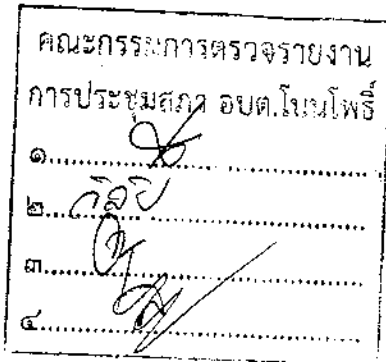 คณะกรรมการตรวจรายงาน
การประชุมสภา อบต.โนนโพธิ์
๑.
๒.
๓.
๔.